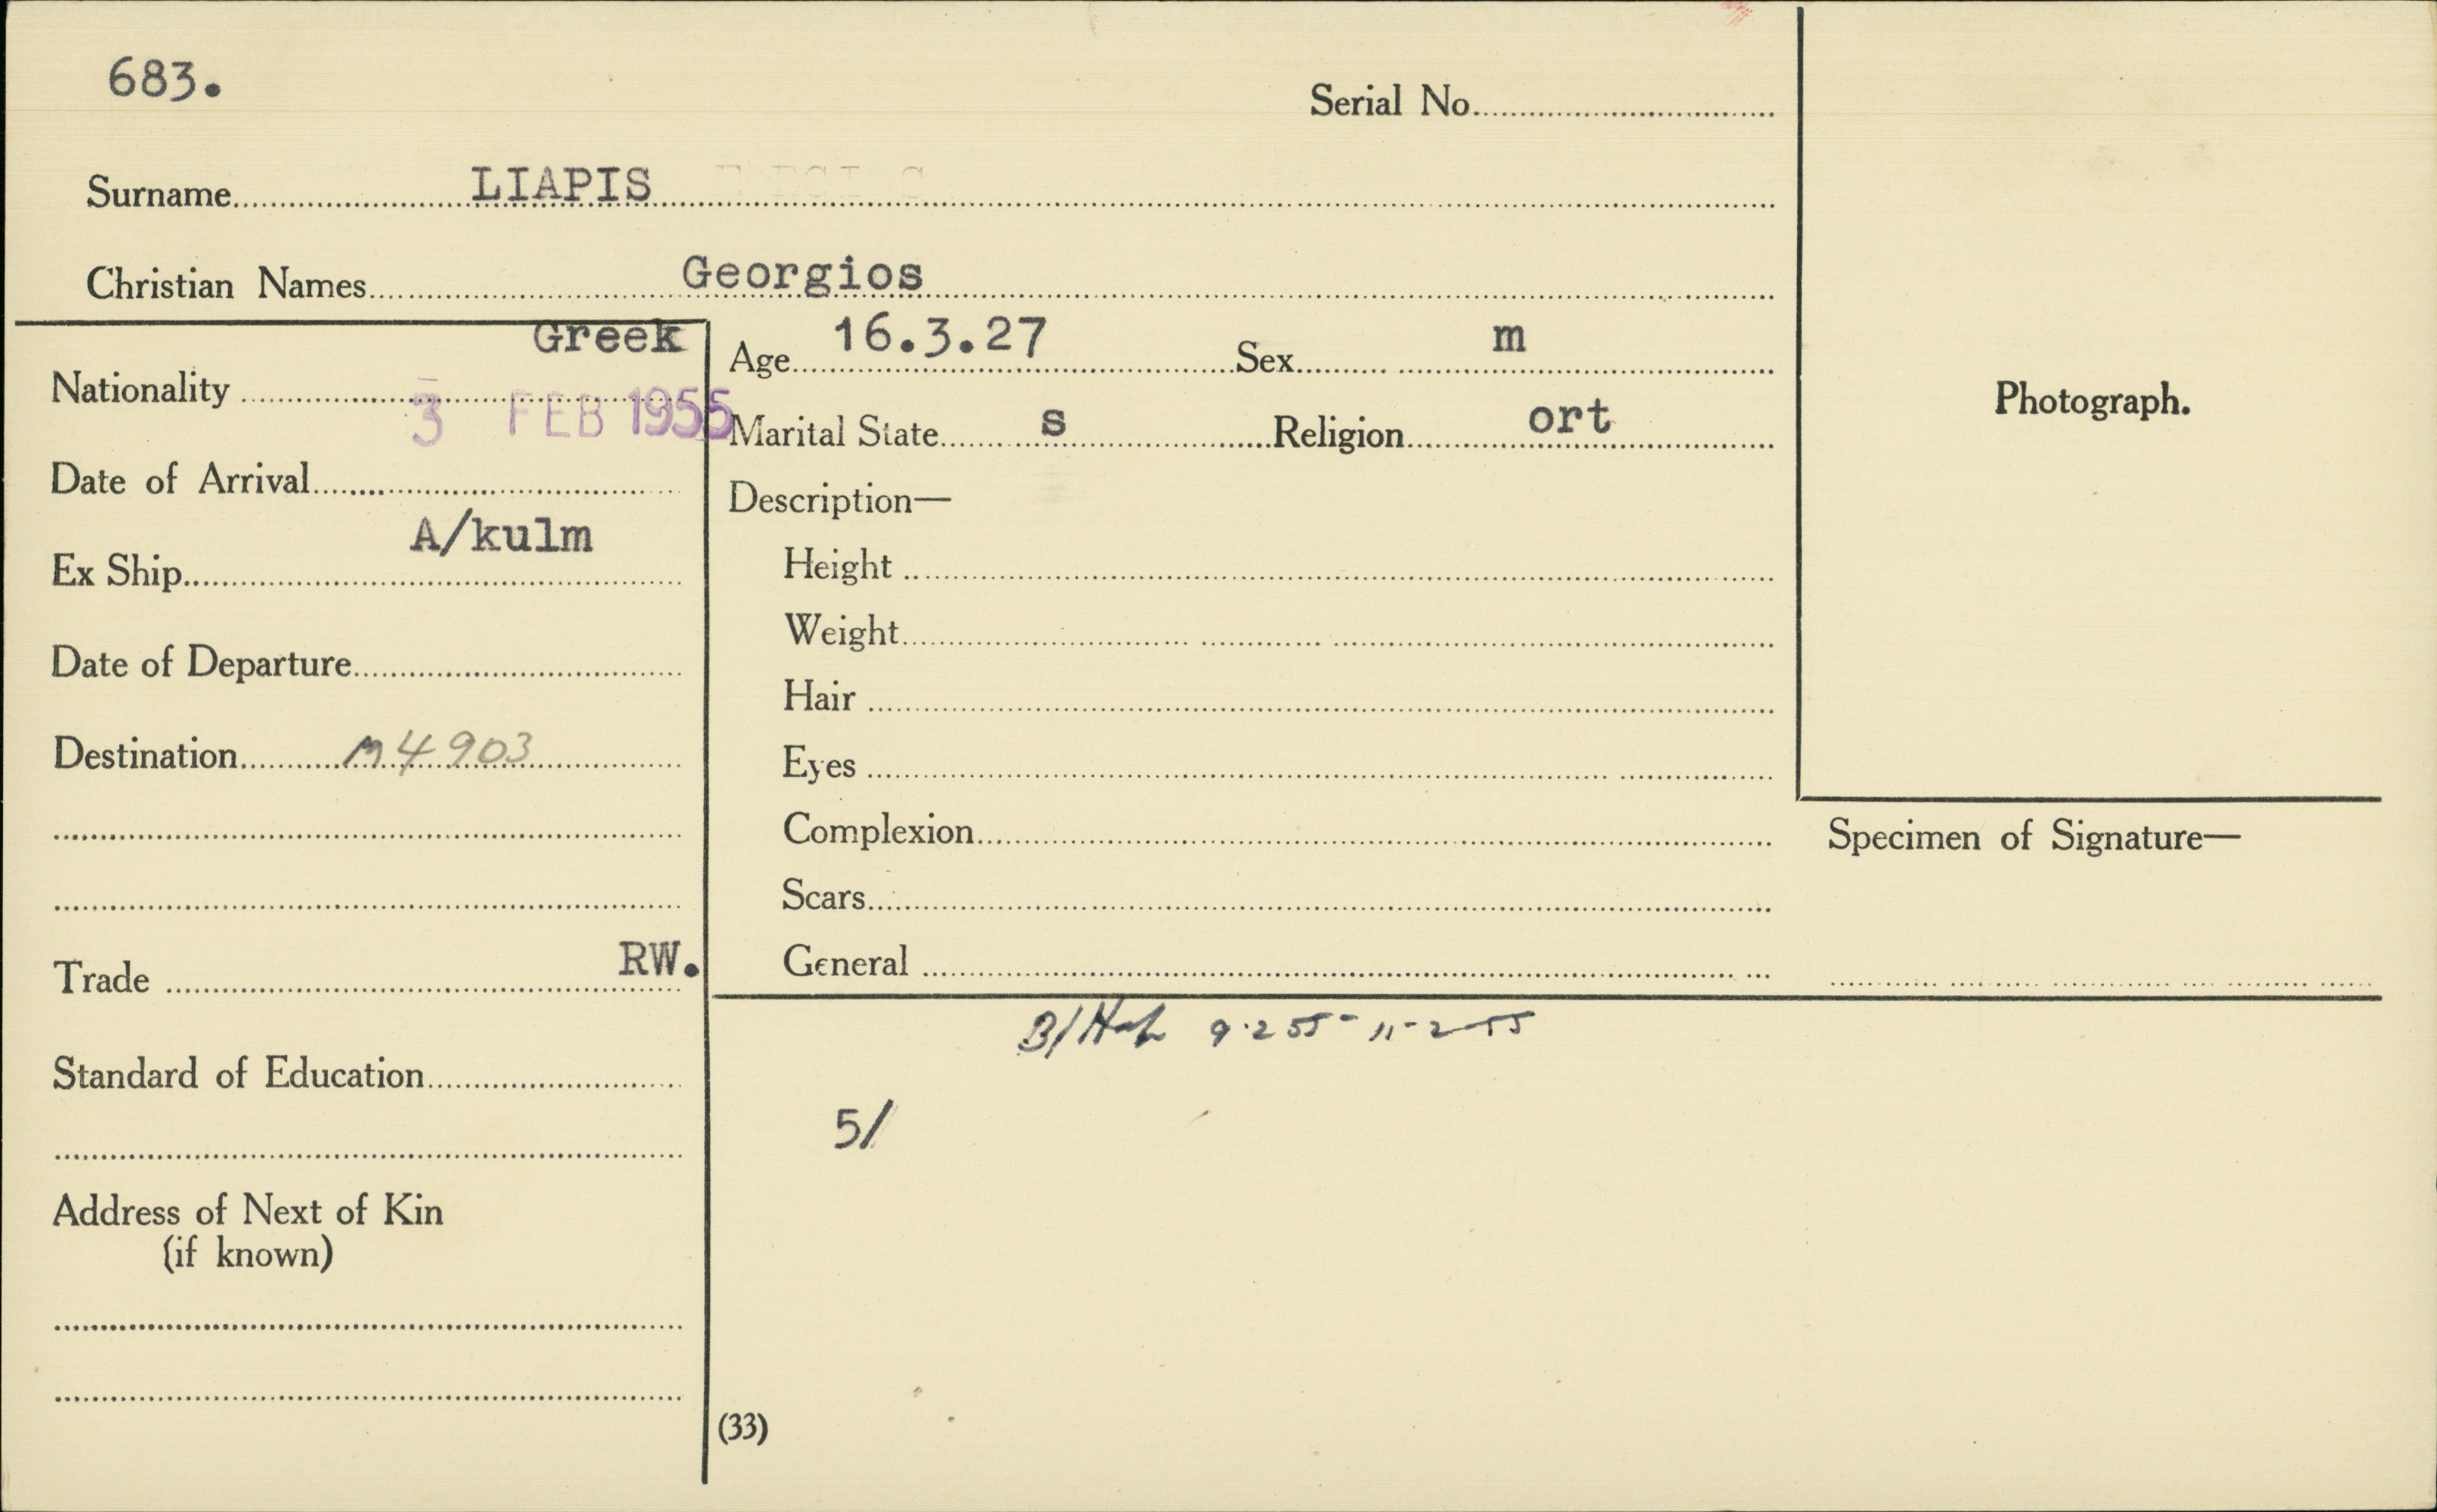 683.
Serial No.
Surname LIAPIS
Christian Names Georgios
Greek
Nationality
3 FEB 1955
Date of Arrival
A/kulm
Ex Ship
Date of Departure
Destination M4903
Trade RW.
Standard of Education
Address of Next of Kin
(if known)
Age 16.3.27 Sex m
Marital State s Religion ort
Description—
Height
Weight
Hair
Eyes
Complexion
Scars
General
Photograph.
Specimen of Signature—
9.2.55 - 11-2-55
5/
(33)